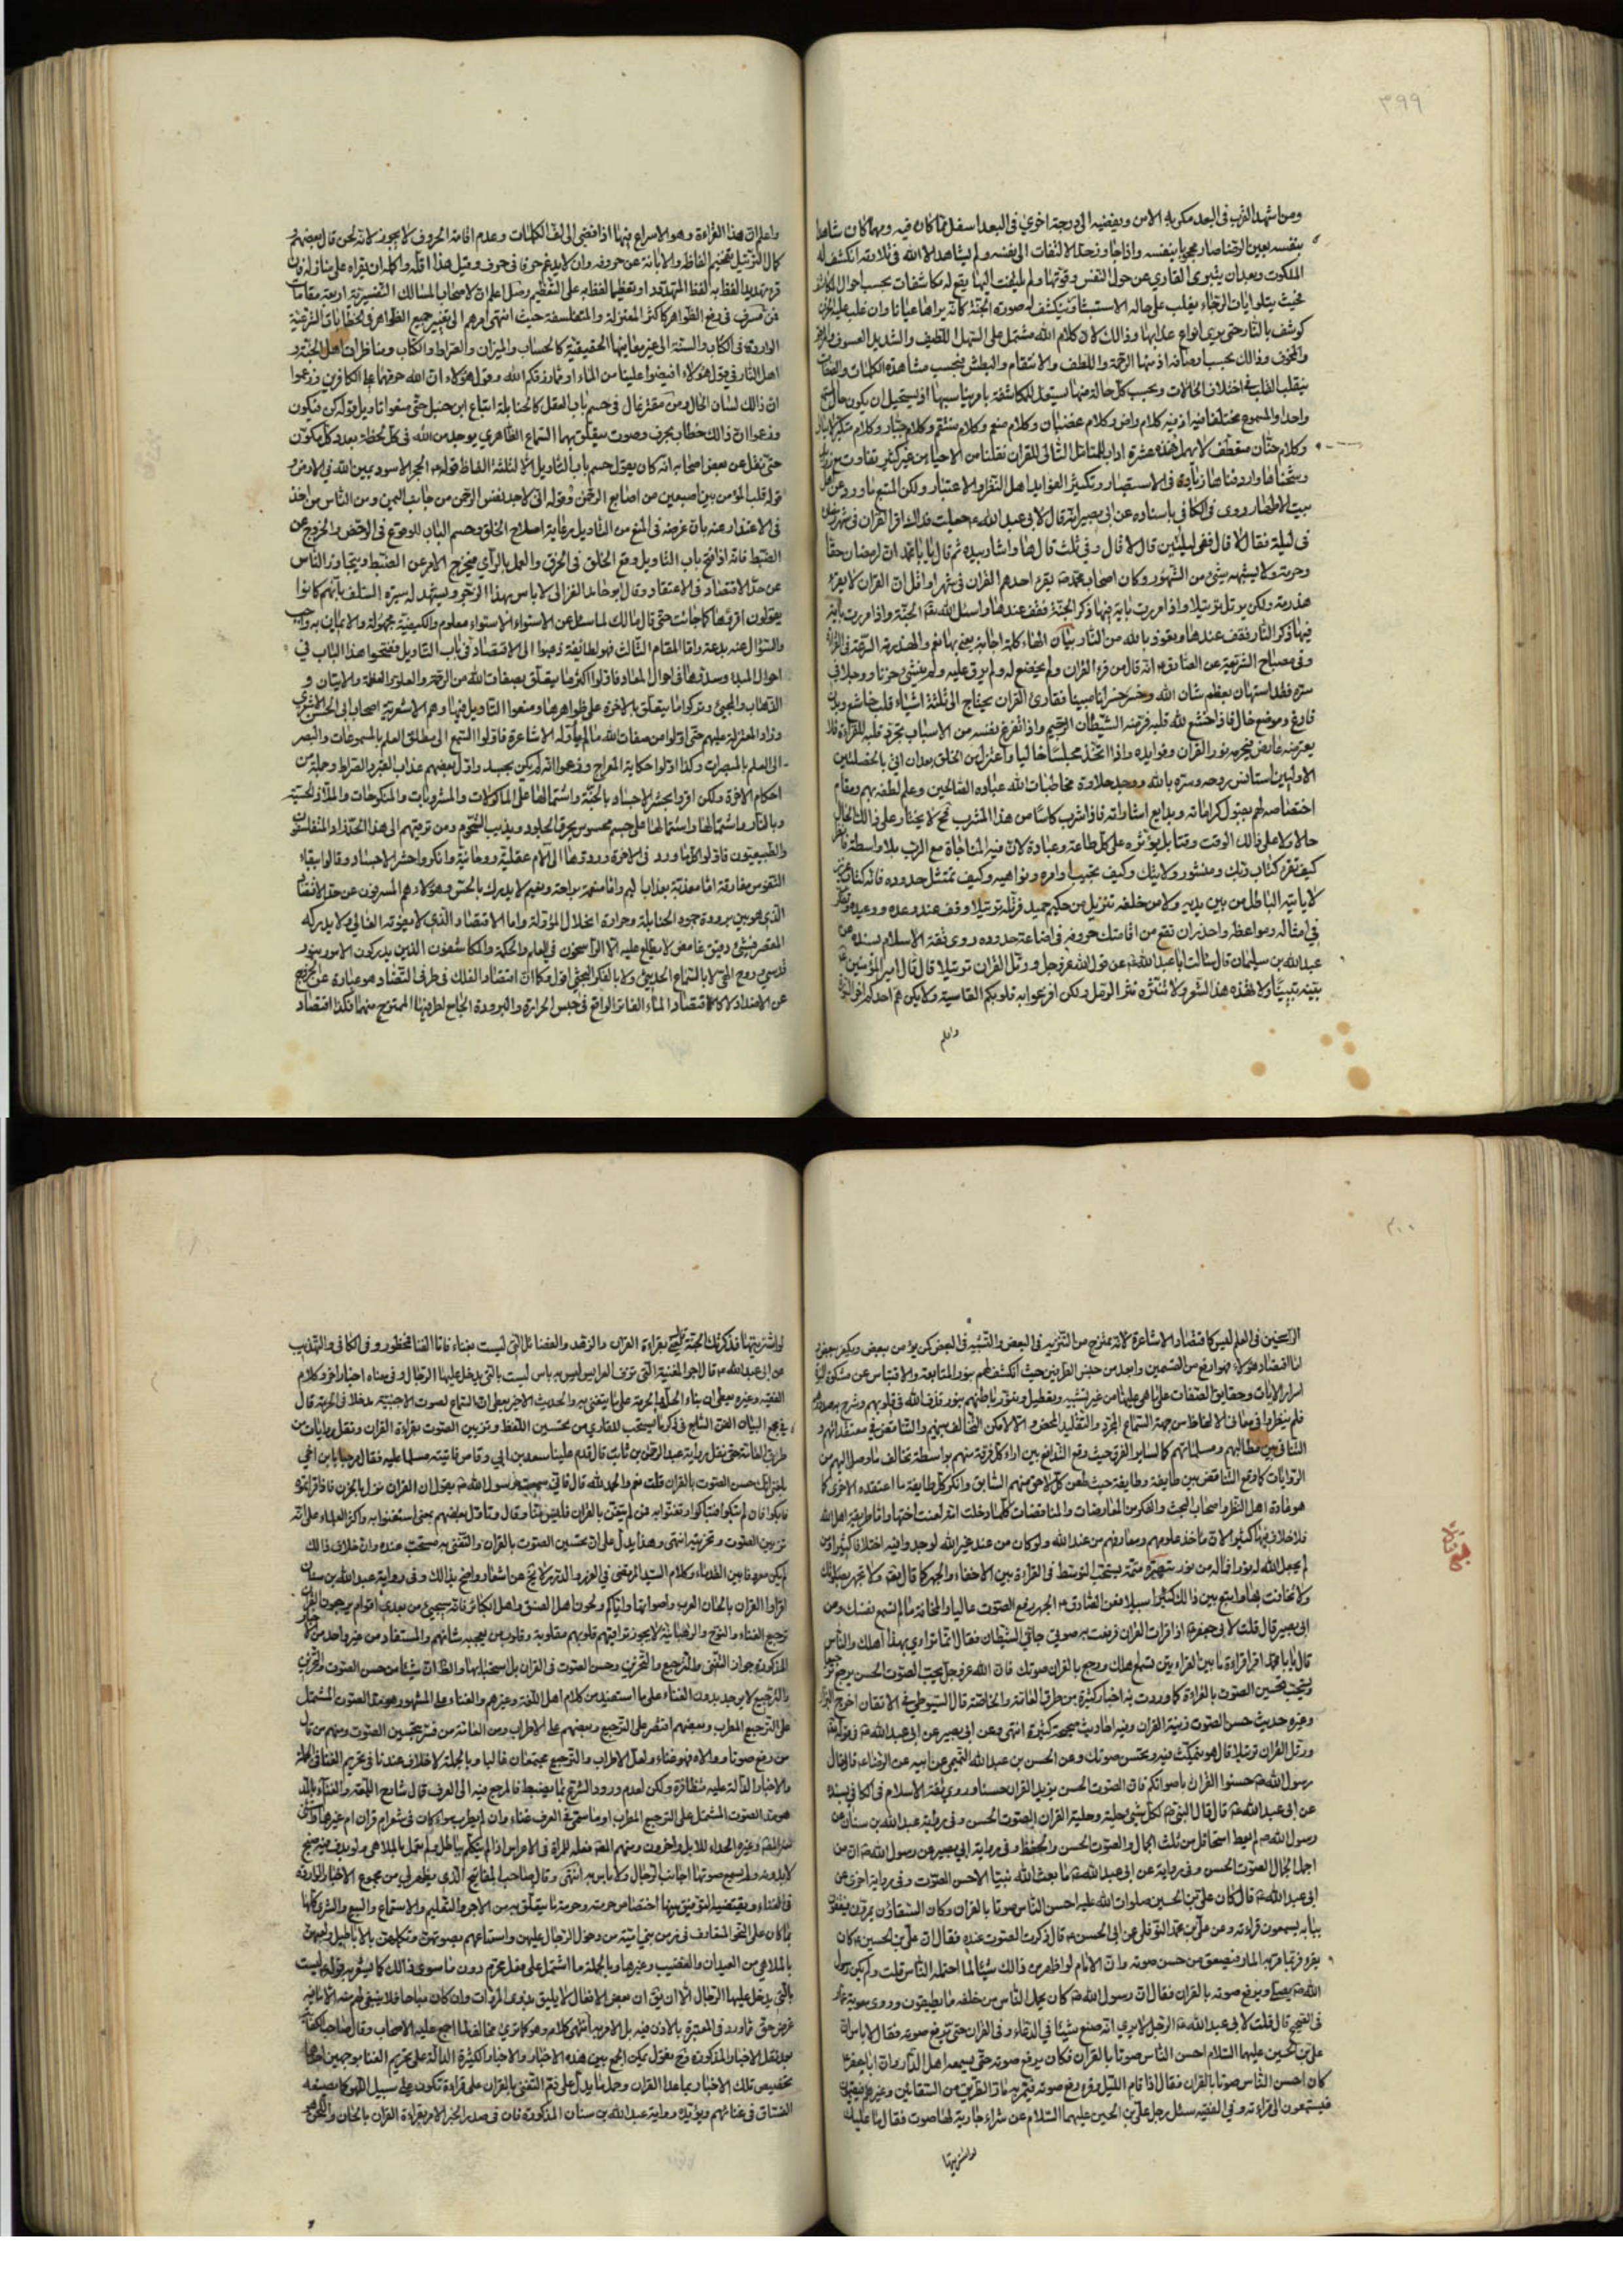 ٣٩٩
ومن اشهد القرب فى البعد مكر به الامن ويفضيه الى درجة اخرى فى البعد اسفل مما كان فيه ومهما كان شاهدا
نفسه بعين الرضا صار محجوبا بنفسه واذا جاوز حد الالتفات الى نفسه ولم يشاهد الا الله فى تلاوته انكشف له
الملكوت وبعد ان يتبرى القارى عن حول النفس وقوتها ولم يلتفت اليها يقع له مكاشفات بحسب احوال المكاشف
فحيث يتلو ايات الرجاء يغلب على حاله الاستبشار وينكشف له صورة الجنة كانه يراها عيانا وان غلب عليه الخوف
كوشف بالنار حتى يرى انواع عذابها وذالك لان كلام الله مشتمل على السهل اللطيف والشديد العسوف والمرجو
والمخوف وذالك بحسب اوصافه اذ منها الرحمة واللطف والانتقام والبطش فبحسب مشاهدة الكلمات والصفات
ينقلب القلب فى اختلاف الحالات وبحسب كل حالة منها يستعد للمكاشفة بامر يناسبها اذ يستحيل ان يكون حال المستمع
واحدا والمسموع مختلفا فيه اذ فيه كلام راض وكلام غضبان وكلام منعم وكلام منتقم وكلام جبار وكلام متكبر لا يبالى
وكلام حنان متعطف لا يهمل فهذه عشرة اداب للتالى للقران نقلنا من الاحياء من غير كثير تفاوت
بيت الاطهار روى فى الكافى باسناده عن ابى بصير انه قال لابى عبد الله ع جعلت فداك اقرا القران فى شهر رمضان
فى ليلة فقال لا قال ففى ليلتين قال لا قال وفى ثلث قال ها واشار بيده ثم قال يا با محمد ان لرمضان حقا
وحرمة ولا يشبهه شئ من الشهور وكان اصحاب محمد ص يقرء احدهم القران فى شهر او اقل ان القران لا يقرء
هذرمة ولكن يرتل ترتيلا واذا مررت باية فيها ذكر الجنة فقف عندها واسئل الله تعالى الجنة واذا مررت باية
فيها ذكر النار فقف عندها وتعوذ بالله من النار بيان الهاء كلمة اجابة بمعنى نعم والهذرمة السرعة فى القراءة
وفى مصباح الشريعة عن الصادق ع انه قال من قرء القران ولم يخضع له ولم يرق عليه ولم ينشئ حزنا ووجلا فى
سره فقد استهان بعظم شان الله وخسر خسرانا مبينا فقارى القران يحتاج الى ثلثة اشياء قلب خاشع وبدن
فارغ وموضع خال فاذا خشع لله قلبه فر منه الشيطان الرجيم واذا تفرغ نفسه من الاسباب تجرد قلبه للقراءة فلا
يعترضه عارض فيحرمه نور القران وفوايده واذا اتخذ مجلسا خاليا واعتزل من الخلق بعد ان اتى بالخصلتين
الاوليين استانس روحه وسره بالله ووجد حلاوة مخاطبات الله عباده الصالحين وعلم لطفه بهم ومقام
اختصاصه لهم بقبول كراماته وبدايع اشاراته فاذا شرب كاسا من هذا المشرب ح لا يختار على ذالك الحال
حالا ولا على ذالك الوقت وقتا بل يؤثره على كل طاعة وعبادة لان فيه المناجاة مع الرب بلا واسطة فانظر
كيف تقرء كتاب ربك ومنشور ولايتك وكيف تجيب اوامره ونواهيه وكيف تمتثل حدوده فانه كتاب عزيز
لا ياتيه الباطل من بين يديه ولا من خلفه تنزيل من حكيم حميد فرتله ترتيلا وقف عند وعده ووعيده وتفكر
فى امثاله ومواعظه واحذر ان تقع من اقامتك حروفه فى اضاعة حدوده روى ثقة الاسلام بسنده عن
عبد الله بن سليمان قال سالت ابا عبد الله ع عن قول الله عز وجل ورتل القران ترتيلا قال قال امير المؤمنين ع
بينه تبيينا ولا تهذه هذا الشعر ولا تنثره نثر الرمل ولكن افزعوا به قلوبكم القاسية ولا يكن هم احدكم اخر السورة
واعلم
واعلم ان هذا القراءة وهو الاسراع فيها اذا افضى الى لف الكلمات وعدم اقامة الحروف لا يجوز لانه لحن قال بعضهم و
كمال الترتيل تفخيم الفاظه والابانة عن حروفه وان لا يدغم حرفا فى حرف وقيل هذا اقله واكمله ان يقراه على منازله فان
قرء تهديدا لفظ به لفظ المتهدد او تعظيما لفظ به على التعظيم وصل اعلم ان لاصحاب المسالك التفسيرية اربعة مقامات
فمن مسرف فى رفع الظواهر كاكثر المعتزلة والمتفلسفة حيث انتهى امرهم الى تغيير جميع الظواهر فى الخطابات الشرعية
الواردة فى الكتاب والسنة الى غير معانيها الحقيقية كالحساب والميزان والصراط والكتاب ومناظرات اهل الجنة و
اهل النار فى قول هؤلاء افيضوا علينا من الماء او مما رزقكم الله وقول هؤلاء ان الله حرمهما على الكافرين وزعموا
ان ذالك لسان الحال ومن مقتر غال فى حسم باب العقل كالحنابلة اتباع ابن حنبل حتى منعوا تاويل قوله كن فيكون
وزعموا ان ذالك خطاب بحرف وصوت يتعلق بهما السماع الظاهرى يوجد من الله فى كل لحظة بعدد كل مكون
حتى نقل عن بعض اصحابه انه كان يقول حسم باب التاويل الا لثلثة الفاظ قوله ص الحجر الاسود يمين الله فى الارض و
قوله قلب المؤمن بين اصبعين من اصابع الرحمن وقوله انى لاجد نفس الرحمن من جانب اليمن ومن الناس من اخذ
فى الاعتذار عنه بان غرضه فى المنع من التاويل رعاية اصلاح الخلق وحسم الباب للوقوع فى الرخص والخروج عن
الضبط فانه اذا فتح باب التاويل وقع الخلق فى الخرق والعمل بالراى فيخرج الامر عن الضبط ويتجاوز الناس
عن حد الاقتصاد فى الاعتقاد وقال ابو حامد الغزالى لا باس بهذا الزجر ويشهد له سيرة السلف بانهم كانوا
يقولون اقرؤها كما جائت حتى قال مالك لما سئل عن الاستواء الاستواء معلوم والكيفية مجهولة والايمان به واجب
والسؤال عنه بدعة واما المقام الثالث فهو لطائفة ذهبوا الى الاقتصاد فى باب التاويل ففتحوا هذا الباب فى
احوال المبدا وسدوها فى احوال المعاد فاولوا اكثر ما يتعلق بصفات الله من الرحمة والعلو والعظمة والاتيان و
الذهاب والمجئ وتركوا ما يتعلق بالاخرة على ظواهرها ومنعوا التاويل فيها وهم الاشعرية اصحاب ابى الحسن الاشعرى
وزاد المعتزلة عليهم حتى اولوا من صفات الله ما لم يأوله الاشاعرة فاولوا السمع الى مطلق العلم بالمسموعات والبصر
الى العلم بالمبصرات وكذا اولوا حكاية المعراج وزعموا انه لم يكن بجسد واول بعضهم عذاب القبر والصراط وجملة من
احكام الاخرة ولكن اقروا بحشر الاجساد بالجنة واشتمالها على الماكولات والمشروبات والمنكوحات والملاذ الحسية
وبالنار واشتمالها على جسم محسوس يحرق الجلود ويذيب الشحوم ومن ترقيهم الى هذا الحد زاد المتفلسفون
والطبيعيون فاولوا كلما ورد فى الاخرة وردوها الى الام عقلية وروحانية وانكروا حشر الاجساد وقالوا ببقاء
النفوس مفارقة اما معذبة بعذاب اليم واما منعمة براحة ونعيم لا يدرك بالحس وهؤلاء هم المسرفون عن حد الاقتصاد
الذى هو بين برودة جمود الحنابلة وحرارة انحلال المؤولة واما الاقتصاد الذى لا يفوته الغالى ولا يدركه
المقصر فشئ دقيق غامض لا يطلع عليه الا الراسخون فى العلم والحكمة والمكاشفون الذين يدركون الامور بنور
قدسى وروح الهى لا بالسماع الحديثى ولا بالفكر البحثى اقول وكما ان اقتصاد الفلك فى طرفى التضاد هو عبارة عن الخروج
عن الاضداد لا كاقتصاد الماء الفاتر الواقع فى جنس الحرارة والبرودة الجامع لطرفيها الممتزج منهما فكذا اقتصاد
٤٠٠
الراسخين فى العلم ليس كاقتصاد الاشاعرة لانه ممتزج من التنزيه فى البعض والتشبيه فى البعض كمن يؤمن ببعض ويكفر ببعض
اما اقتصاد هؤلاء فهو ارفع من القسمين وابعد من جنس الطرفين حيث انكشف لهم بنور المتابعة والاقتباس عن مشكوة النبوة
اسرار الايات وحقايق الصفات على ما هى عليها من غير تشبيه وتعطيل وينور باطنهم بنور قذف الله فى قلوبهم وشرح به صدورهم
فلم ينظروا فى معانى الالفاظ من جهة السماع المجرد والتقليد المحض والا لامكن التخالف بينهم والتناقض فى معتقداتهم و
التنافى بين مطالبهم ومسلماتهم كما لساير الفرق حيث وقع التدافع بين اراء كل فرقة منهم بواسطة تخالف ما وصل اليهم من
الروايات كما وقع التناقض بين طايفة وطايفة حيث طعن كل لاحق منهم السابق وانكر كل طايفة ما اعتقده الاخرى كما
هو عادة اهل النظر واصحاب البحث والفكر من المعارضات والمناقضات كلما دخلت امة لعنت اختها واما طريقة اهل الله
فلا خلاف فيها كثيرا لان ماخذ علومهم ومعارفهم من عند الله ولو كان من عند غير الله لوجدوا فيه اختلافا كثيرا ومن
لم يجعل الله له نورا فما له من نور تتمة يستحب التوسط فى القراءة بين الاخفاء والجهر كما قال تعالى ولا تجهر بصلوتك
ولا تخافت بها وابتغ بين ذالك سبيلا فعن الصادق ع الجهر رفع الصوت عاليا والمخافتة ما لم تسمع نفسك وعن
ابى بصير قال قلت لابى جعفر ع اذا قرات القران فرفعت به صوتى جائنى الشيطان فقال انما ترائى بهذا اهلك والناس
قال يا با محمد اقرا قراءة ما بين القراءتين تسمع اهلك ورجع بالقران صوتك فان الله عز وجل يحب الصوت الحسن يرجع فيه
ويستحب تحسين الصوت بالقراءة كما وردت به اخبار كثيرة من طرق العامة والخاصة قال السيوطى فى الاتقان اخرج البزار
وغيره حديث حسن الصوت زينة القران وفيه احاديث صحيحة كثيرة انتهى وعن ابى بصير عن ابى عبد الله ع فى قوله تعالى
ورتل القران ترتيلا قال هو ان تتمكث فيه وتحسن صوتك وعن الحسن بن عبد الله التميمى عن ابيه عن الرضا ع قال قال
رسول الله ص حسنوا القران باصواتكم فان الصوت الحسن يزيد القران حسنا وروى ثقة الاسلام فى الكافى بسنده
عن ابى عبد الله ع قال قال النبى ص لكل شئ حلية وحلية القران الصوت الحسن وفى رواية عبد الله بن سنان عن
رسول الله ص لم يعط امتى اقل من ثلث الجمال والصوت الحسن والحفظ وفى رواية ابى بصير عن رسول الله ص ان من
اجمل الجمال الصوت الحسن وفى رواية عن ابى عبد الله ع ما بعث الله نبيا الا حسن الصوت وفى رواية اخرى عن
ابى عبد الله ع قال كان على بن الحسين صلوات الله عليه احسن الناس صوتا بالقران وكان السقاؤن يمرون فيقفون
ببابه يسمعون قراءته وعن على بن محمد النوفلى عن ابى الحسن ع قال ذكرت الصوت عنده فقال ان على بن الحسين ع كان
يقرء فربما مر به المار فصعق من حسن صوته وان الامام لو اظهر من ذالك شيئا لما احتمله الناس قلت ولم يكن رسول
الله ص يصلى ويرفع صوته بالقران فقال ان رسول الله ص كان يحمل الناس من خلفه ما يطيقون وروى معوية بن عمار
فى الصحيح قال قلت لابى عبد الله ع الرجل لا يرى انه صنع شيئا فى الدعاء وفى القران حتى يرفع صوته فقال لا باس ان
على بن الحسين عليهما السلام احسن الناس صوتا بالقران فكان يرفع صوته حتى يسمعه اهل الدار وان ابا جعفر ع
كان احسن الناس صوتا بالقران فقال اذا قام الليل وقرء رفع صوته فيمر به مار الطريق من السقائين وغيرهم فيقومون
فيستمعون الى قراءته وفى الفقيه سئل رجل على بن الحسين عليهما السلام عن شراء جارية لها صوت فقال ما عليك
لو اشتريتها
لو اشتريتها فذكرتك الجنة يعنى بقراءة القران والزهد والفضائل التى ليست بغناء فاما الغناء فمحظور وفى الكافى والتهذيب
عن ابى عبد الله ع قال اجر المغنية التى تزف العرايس ليس به باس ليست بالتى يدخل عليها الرجال وفى معناه اخبار اخر وكلام
الفقيه وغيره يعطى ان بناء الحل والحرمة على ما يتغنى به والحديث الاخر يعطى ان السماع لصوت الاجنبية مدخلا فى الحرمة قال
فى مجمع البيان الفن السابع فى ذكر ما يستحب للقارى من تحسين اللفظ وتزيين الصوت بقراءة القران ونقل روايات من
طريق العامة حتى نقل برواية عبد الرحمن بن ثابت قال قدم علينا سعد بن ابى وقاص فاتيته مسلما عليه فقال مرحبا يا بن اخى
بلغنى انك حسن الصوت بالقران قلت نعم والحمد لله قال فانى سمعت رسول الله ص يقول ان القران نزل بالحزن فاذا قراتموه
فابكوا فان لم تبكوا فتباكوا وتغنوا به فمن لم يتغن بالقران فليس منا وقال وتاول بعضهم بمعنى استغنوا به واكثر العلماء على انه
تزيين الصوت وتحزينه انتهى وهذا يدل على ان تحسين الصوت بالقران والتغنى به مستحب عنده وان خلاف ذالك
لم يكن معروفا بين القدماء وكلام السيد المرتضى فى الغرر والدرر لا يخ عن اشعار واضح بذالك وفى رواية عبد الله بن سنان
اقراوا القران بالحان العرب واصواتها واياكم ولحون اهل الفسق واهل الكبائر فانه سيجئ من بعدى اقوام يرجعون القران
ترجيع الغناء والنوح والرهبانية لا يجوز تراقيهم قلوبهم مقلوبة وقلوب من يعجبه شانهم والمستفاد من غير واحد من الاخبار
المذكورة جواز التغنى والترجيع والتحزين وحسن الصوت فى القران بل استحبابها والظ ان شيئا من حسن الصوت والتحزين
والترجيع لا يوجد بدون الغناء على ما استفيد من كلام اهل اللغة وغيرهم والغناء على المشهور هو مد الصوت المشتمل
على الترجيع المطرب وبعضهم اقتصر على الترجيع وبعضهم على الاطراب ومن العامة من فسر بتحسين الصوت ومنهم من قال
من رفع صوتا ووالاه فهو غناء ولعل الاطراب والترجيع مجتمعان غالبا وبالجملة لا خلاف عندنا فى تحريم الغناء فى الجملة
والاخبار الدالة عليه متظافرة ولكن لعدم ورود الشرع بما يضبط فالمرجع فيه الى العرف قال شارح اللمعة والغناء بالمد
هو مد الصوت المشتمل على الترجيع المطرب او ما سمى فى العرف غناء وان لم يطرب سواء كان فى شعر ام قران ام غيرهما واستثنى
منه المصنف وغيره الحداء للابل واخرون ومنهم المص فعله للمراة فى الاعراس اذا لم يتكلم بباطل ولم تعمل بالملاهى ولو بدف فيه صنج
لا بدونه ولم يسمع صوتها اجانب الرجال ولا باس به انتهى وقال صاحب المفاتيح الذى يظهر لى من مجموع الاخبار الواردة
فى الغناء ويقتضيه التوفيق بينها اختصاص حرمته وحرمة ما يتعلق به من الاجر والتعليم والاستماع والبيع والشرى كلها
بما كان على النحو المتعارف فى زمن بنى امية من دخول الرجال عليهن واستماعهم بصوتهن وتكلمهن بالاباطيل ولعبهن
بالملاهى من العيدان والقضيب وغيرها وبالجملة ما اشتمل على فعل محرم دون ما سوى ذالك كما يشعر به قوله ع ليست
بالتى يدخل عليها الرجال الا ان يق ان بعض الافعال لا يليق بذوى المروات وان كان مباحا فلا ينبغى لهم منه الا ما فيه
غرض حق مما ورد فى المعتبرة بالاذن فيه بل الامر به انتهى كلامه وهو كما ترى مخالف لما اجمع عليه الاصحاب وقال صاحب الكفاية
بعد نقل الاخبار المذكورة وح نقول يمكن الجمع بين هذه الاخبار والاخبار الكثيرة الدالة على تحريم الغناء بوجهين احدهما
تخصيص تلك الاخبار بما عدا القران وحمل ما يدل على ذم التغنى بالقران على قراءة تكون على سبيل اللهو كما يصنعه
الفساق فى غنائهم ويؤيده رواية عبد الله بن سنان المذكورة فان فى صدر الخبر الامر بقراءة القران بالحان واللحن هو